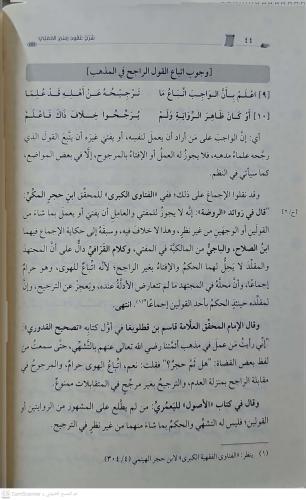 شرح عقود رسم المفتي
٤٤
[وجوب اتباع القول الراجح في المذهب]
[٩] اعْلَمْ بِأَنَّ الوَاجِبَ اتِّبَاعُ مَا تَرْجِيحُهُ عَنْ أَهْلِهِ قَدْ عُلِمَا
[١٠] أَوْ كَانَ ظَاهِرَ الرِّوَايَةِ وَلَمْ يُرَجِّحُوا خِلَافَ ذَاكَ فَاعْلَمْ
أي: إنَّ الواجبَ على مَن أراد أن يعملَ لنفسِه، أو يفتيَ غيرَه أن يتَّبعَ القولَ الذي
رجَّحه علماءُ مذهبه، فلا يجوزُ له العملُ أو الإفتاءُ بالمرجوح، إلَّا في بعض المواضع،
كما سيأتي في النظم.
وقد نقلوا الإجماعَ على ذلك؛ ففي «الفتاوى الكبرى» للمحقِّق ابن حجرٍ المكِّيِّ:
قال في زوائد «الروضة»: إنَّه لا يجوزُ للمفتي والعاملِ أن يفتيَ أو يعملَ بما شاءَ من
القولين أو الوجهين من غير نظرٍ، وهذا لا خلاف فيه، وسبقَهُ إلى حكاية الإجماع فيهما
ابنُ الصلاح، والباجيُّ من المالكيَّة في المفتي، وكلامُ القَرَافيِّ دالٌّ على أنَّ المجتهدَ
والمقلِّدَ لا يَحِلُّ لهما الحكمُ والإفتاءُ بغير الراجح؛ لأنَّه اتِّباعٌ للهوى، وهو حرامٌ
إجماعًا، وأنَّ محلَّهُ في المجتهد ما لم تتعارض الأدلَّةُ عنده، ويعجِزْ عن الترجيح، وإنَّ
لمقلِّده حينئذٍ الحكمَ بأحد القولين إجماعًا(١). انتهى.
وقال الإمام المحقِّقُ العلَّامةُ قاسمُ بن قُطلوبغا في أوَّل كتابه «تصحيح القدوري»:
إنِّي رأيتُ مَن عمل في مذهب أئمَّتنا رضي الله تعالى عنهم بالتَّشهِّي، حتَّى سمعتُ من
لفظ بعض القضاة: «هل ثَمَّ حجرٌ؟» فقلت: نعم، اتِّباعُ الهوى حرامٌ، والمرجوحُ في
مقابلة الراجح بمنزلة العدم، والترجيحُ بغير مرجِّحٍ في المتقابلات ممنوعٌ.
وقال في كتاب «الأصول» لليَعمُريِّ: مَن لم يطَّلع على المشهور من الروايتين أو
القولين؛ فليس له التشهِّي والحكمُ بما شاءَ منهما من غير نظرٍ في الترجيح.
(١) ينظر: «الفتاوى الفقهية الكبرى» لابن حجر الهيتمي (٤/ ٣٠٤)
CamScanner